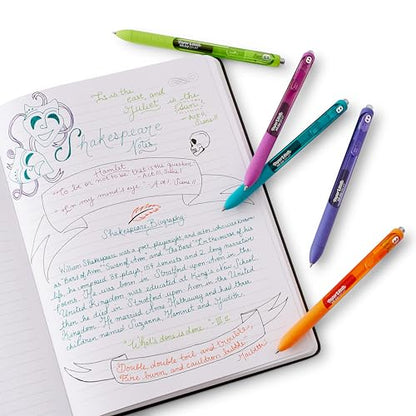 'Tis the East, and
Juliet is the
Sun"
Act II
Scene II
Shakespeare
Notes
Hamlet
"To be or not to be that is the question"
Act III Scene II
"In my mind's eye" Act I, Scene II
Shakespeare Biography
William Shakespeare was a poet, playwright, and also is known
as Bard of Avon, "Swan of Avon" and "The Bard". In the course of his
life he composed 38 plays, 154 sonnets and 2 long narrative
poems. He was born in Stratford upon Avon in the
United Kingdom was educated at King's New School,
then he died in Stratford upon Avon in the United
Kingdom. He married Anne Hathaway and had three
children named Susanna, Hamnet and Judith.
"What's done is done"
Double, double toil and trouble,
Fire burn, and cauldron bubble
Macbeth